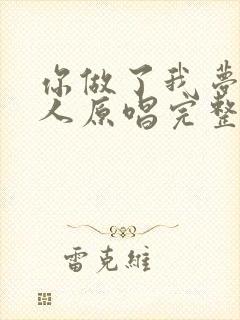 你做了我夢
人原唱完整
雷克維